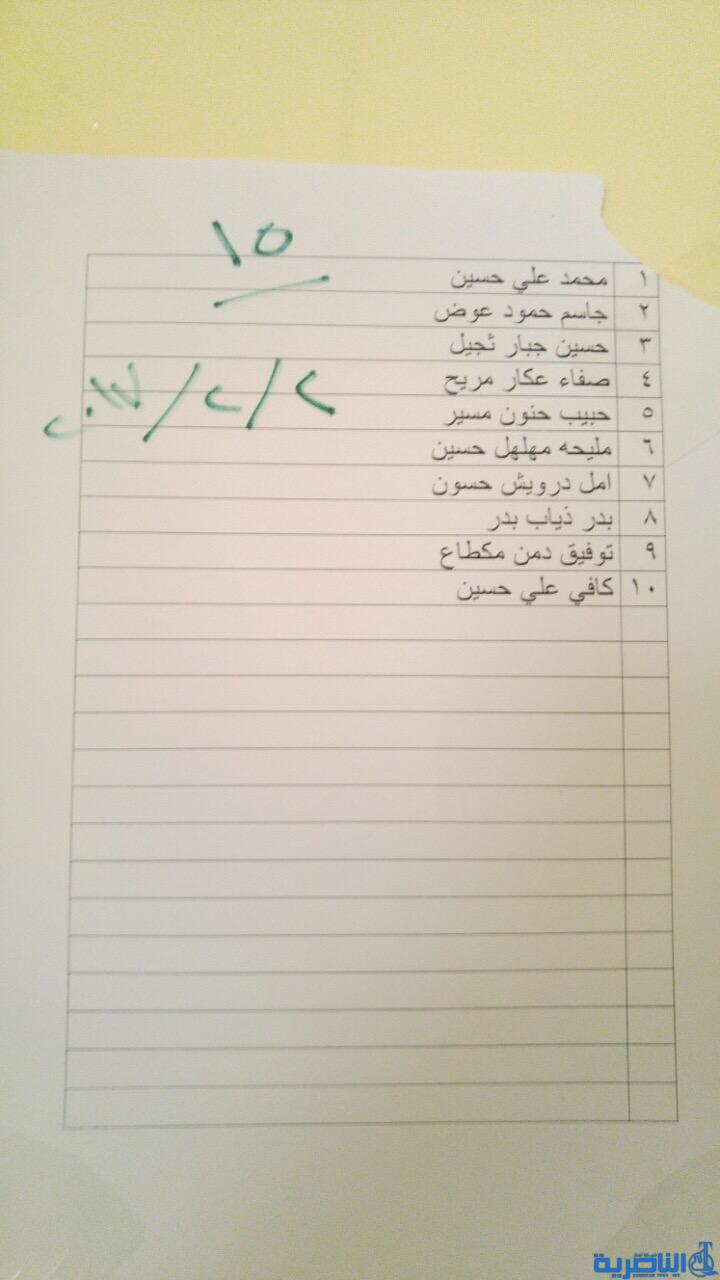 ١٥
١ محمد علي حسين
٢ جاسم حمود عوض
٣ حسين جبار ثجيل
٤ صفاء عكار مريح
٥ حبيب حنون مسير
٦ مليحه مهلهل حسين
٧ امل درويش حسون
٨ بدر ذياب بدر
٩ توفيق دمن مكطاع
١٠ كافي علي حسين
الناصرية